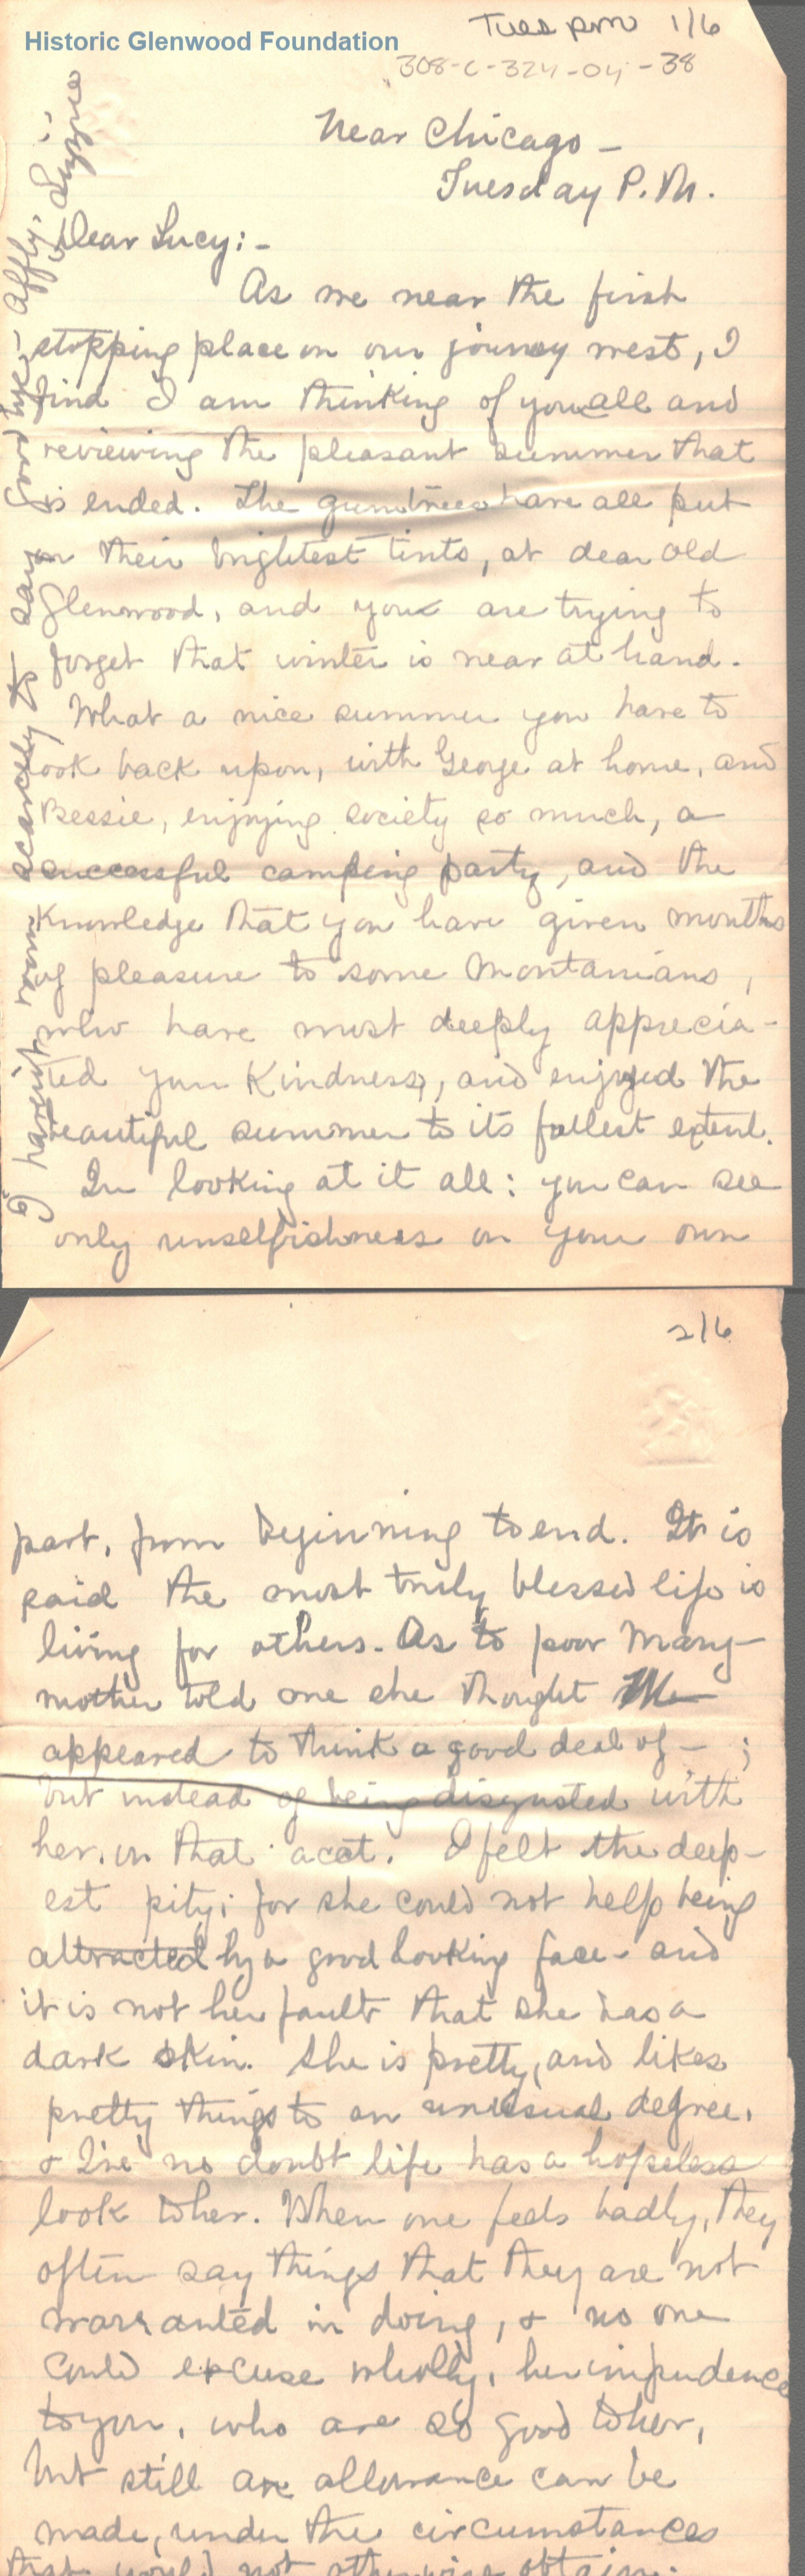 Historic Glenwood Foundation
Tues pm 1/6
308-C-324-04-38
Near Chicago -
Tuesday P.M.
Dear Lucy:-
As we near the first
stopping place on our journey west, I
find I am thinking of you all and
reviewing the pleasant summer that
is ended. The gumtrees have all put
on their brightest tints, at dear old
Glenwood, and you are trying to
forget that winter is near at hand.
What a nice summer you have to
look back upon, with George at home, and
Bessie, enjoying society so much, a
successful camping party, and the
knowledge that you have given months
of pleasure to some Montanians,
who have most deeply apprecia-
ted your kindness, and enjoyed the
beautiful summer to its fullest extent.
In looking at it all: you can see
only unselfishness on your own
I haven't room scarcely to say good bye - Affly. Lizzie
2/6
part, from beginning to end. It is
said the most truly blessed life is
living for others. As to poor Mary -
mother told me she thought
appeared to think a good deal of - ;
but instead of being disgusted with
her, in that . I felt the deep-
est pity; for she could not help being
attracted by a good looking face - and
it is not her fault that she has a
dark skin. She is pretty, and likes
pretty things to an unusual degree,
& I've no doubt life has a hopeless
look to her. When one feels badly, they
often say things that they are not
warranted in doing, & no one
could excuse wholly, her impudence
to you, who are so good to her,
but still an allowance can be
made, under the circumstances
that would not otherwise obtain.